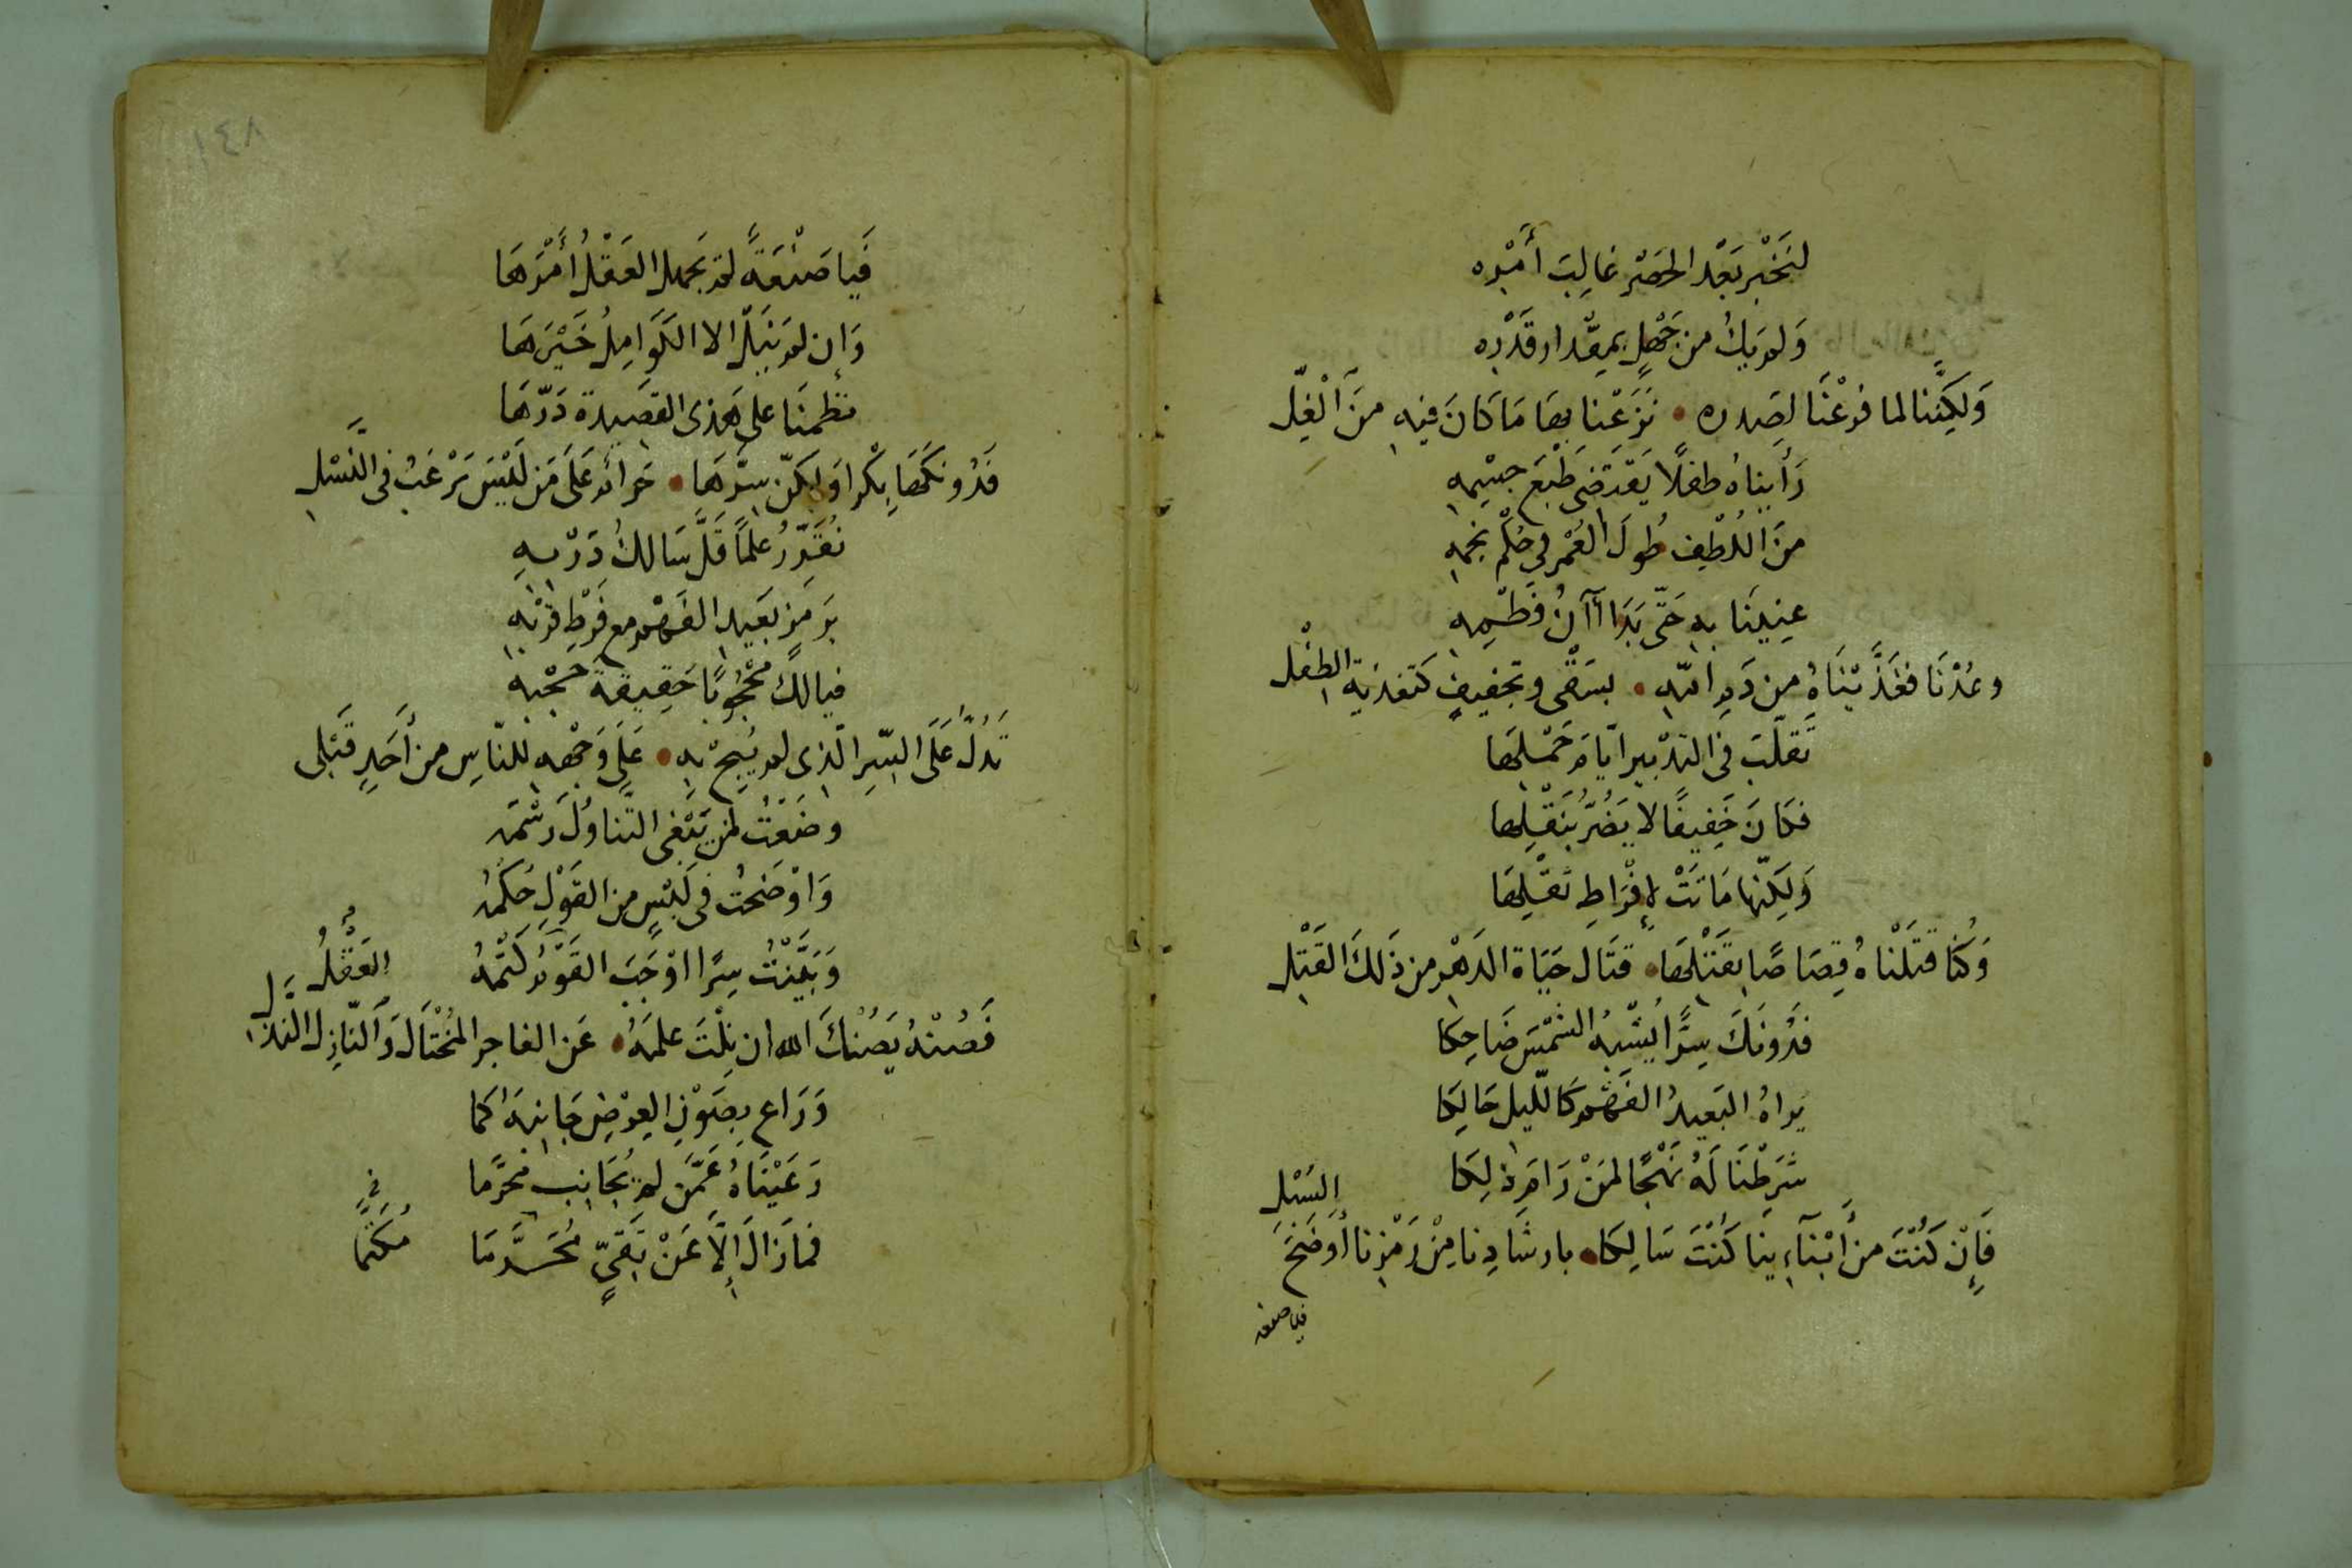 لنَخْبُر بَعْد الحَصْر غالِبَ أمْرِه
وَلم يَكُ من جَهْلٍ بمِقْدار قَدْرِه
وَلكِنَّنا لما فرغْنَا لصَدره • نَزَعْنا بها مَا كَانَ فيهِ منَ الْغِلّ
رَأيناهُ طفلًا يَقْتَضى طَبْعَ جسْمِهِ
منَ اللُطْفِ طُولَ العُمْر فى حُكْم نجمهِ
عنِينَا بهِ حَتّى بَدَا آنُ فَطْمِهِ
وعُدْنَا فغَذَّيْنَاهُ من دَمِ امّهِ • بسَقْى وتجفيفٍ كتغذيَة الطفْل
تَقلّبَ فى التدْبير ايّامَ حَمْلِها
فكَانَ خَفِيفًا لا يَضُرُّ بنَقْلِها
وَلكِنّها مَاتَتْ لإفْرَاطِ ثقْلِهَا
وَكُنّا قتَلْنَاهُ قِصَاصًا بقَتْلِهَا • فنَال حَيَاة الدَهْر من ذَلكَ القَتْل
فدُونَكَ سِرًّا يُشْبهُ الشمْسَ ضَاحِكا
يَراهُ البَعيدُ الفَهْم كَاللّيل حَالِكا
شرَطْنَا لَهُ نَهْجًا لمَنْ رَامَ ذلِكَا
فَإنْ كُنْتَ من أبْنآءِينَا كُنْتَ سَالِكا • بارشادِنا مِنْ رَمْزِنا أوضَحَ السُبْل
فيا صنعة
١٤٨
فَيا صَنْعَةً لم يَجهل العَقْلُ أمْرَهَا
وَإن لم يَنَلْ الا الكَوَامِلُ خَيْرَهَا
نظمْنَا على هَذى القصَيدة دَرّهَا
فَدُونكَهَا بِكْرا وَلكنّ سِرَّهَا • حَرامٌ عَلَى مَن لَيْسَ يَرْغَبُ فى النَّسْل
نُقَرِّرُ علمًا قَلَّ سَالكُ دَرْبهِ
برَمزٍ بعَيد الفَهْم مع فَرْطِ قرْبهِ
فيالكَ مَحْجُوبًا حَقِيقَة حَجْبهِ
تَدُلُّ عَلَى السّرِ الّذى لم يُبِحْ بهِ • عَلَى وَجْههِ للنّاسِ من أحَدٍ قَبْلى
وضَعْتُ لمن يَبْغى التّناوُلَ رَسْمَه
وَاوْضَحْتُ فى لَبْسٍ من القَوْلِ حُكمُه
وَبَيَّنْتُ سِرًّا اوْجَبَ القَوْمُ كَتْمَهُ
فَصُنْهُ يَصُنْكَ الله ان نِلْتَ علمَهُ • عَن الفاجر المُخْتَالَ وَالنّاذِل النذْل العَقْل
وَرَاع بصَوْنِ العِرْضِ جَانِبَه كما
رَعَيْنَاهُ عَمَّن لم يُجَانِب محَرَّما
فمازَالَ إلّا عَنْ تَقيٍّ مُحَرَّمَا
مُكَتَّمًا